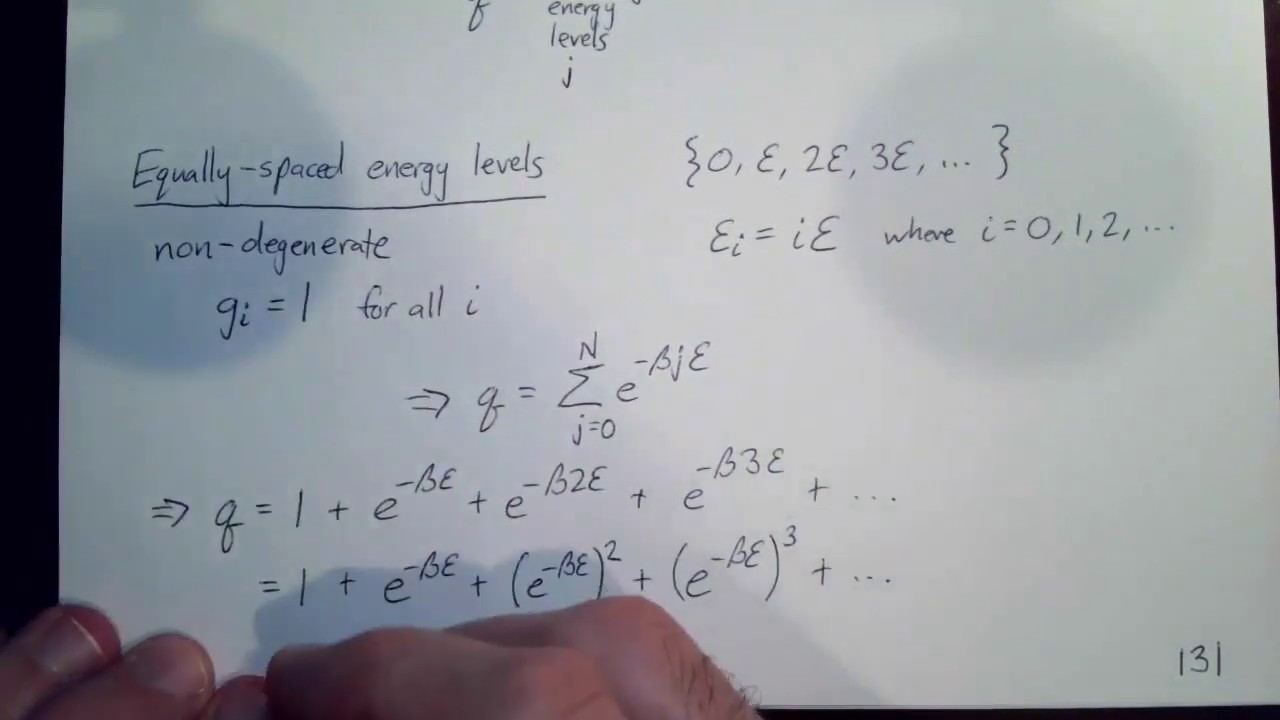 q energy
levels
j
Equally-spaced energy levels {0, ε, 2ε, 3ε, ... }
non-degenerate εᵢ = iε where i = 0, 1, 2, ...
gᵢ = 1 for all i
⇒ q = Σ_{j=0}^{N} e^{-βjε}
⇒ q = 1 + e^{-βε} + e^{-β2ε} + e^{-β3ε} + ...
= 1 + e^{-βε} + (e^{-βε})² + (e^{-βε})³ + ...
131